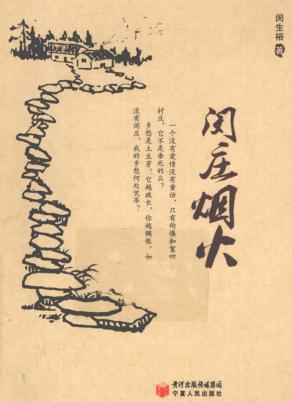 闵生裕 著
闵庄烟火
一个没有爱情没有童话，只有佝偻和絮叨
村庄，它不是垂死的么？
乡愁是土豆芽，它越疯长，你越惆怅。如
没有闵庄，我的乡愁何处凭吊？
黄河出版传媒集团
宁夏人民出版社